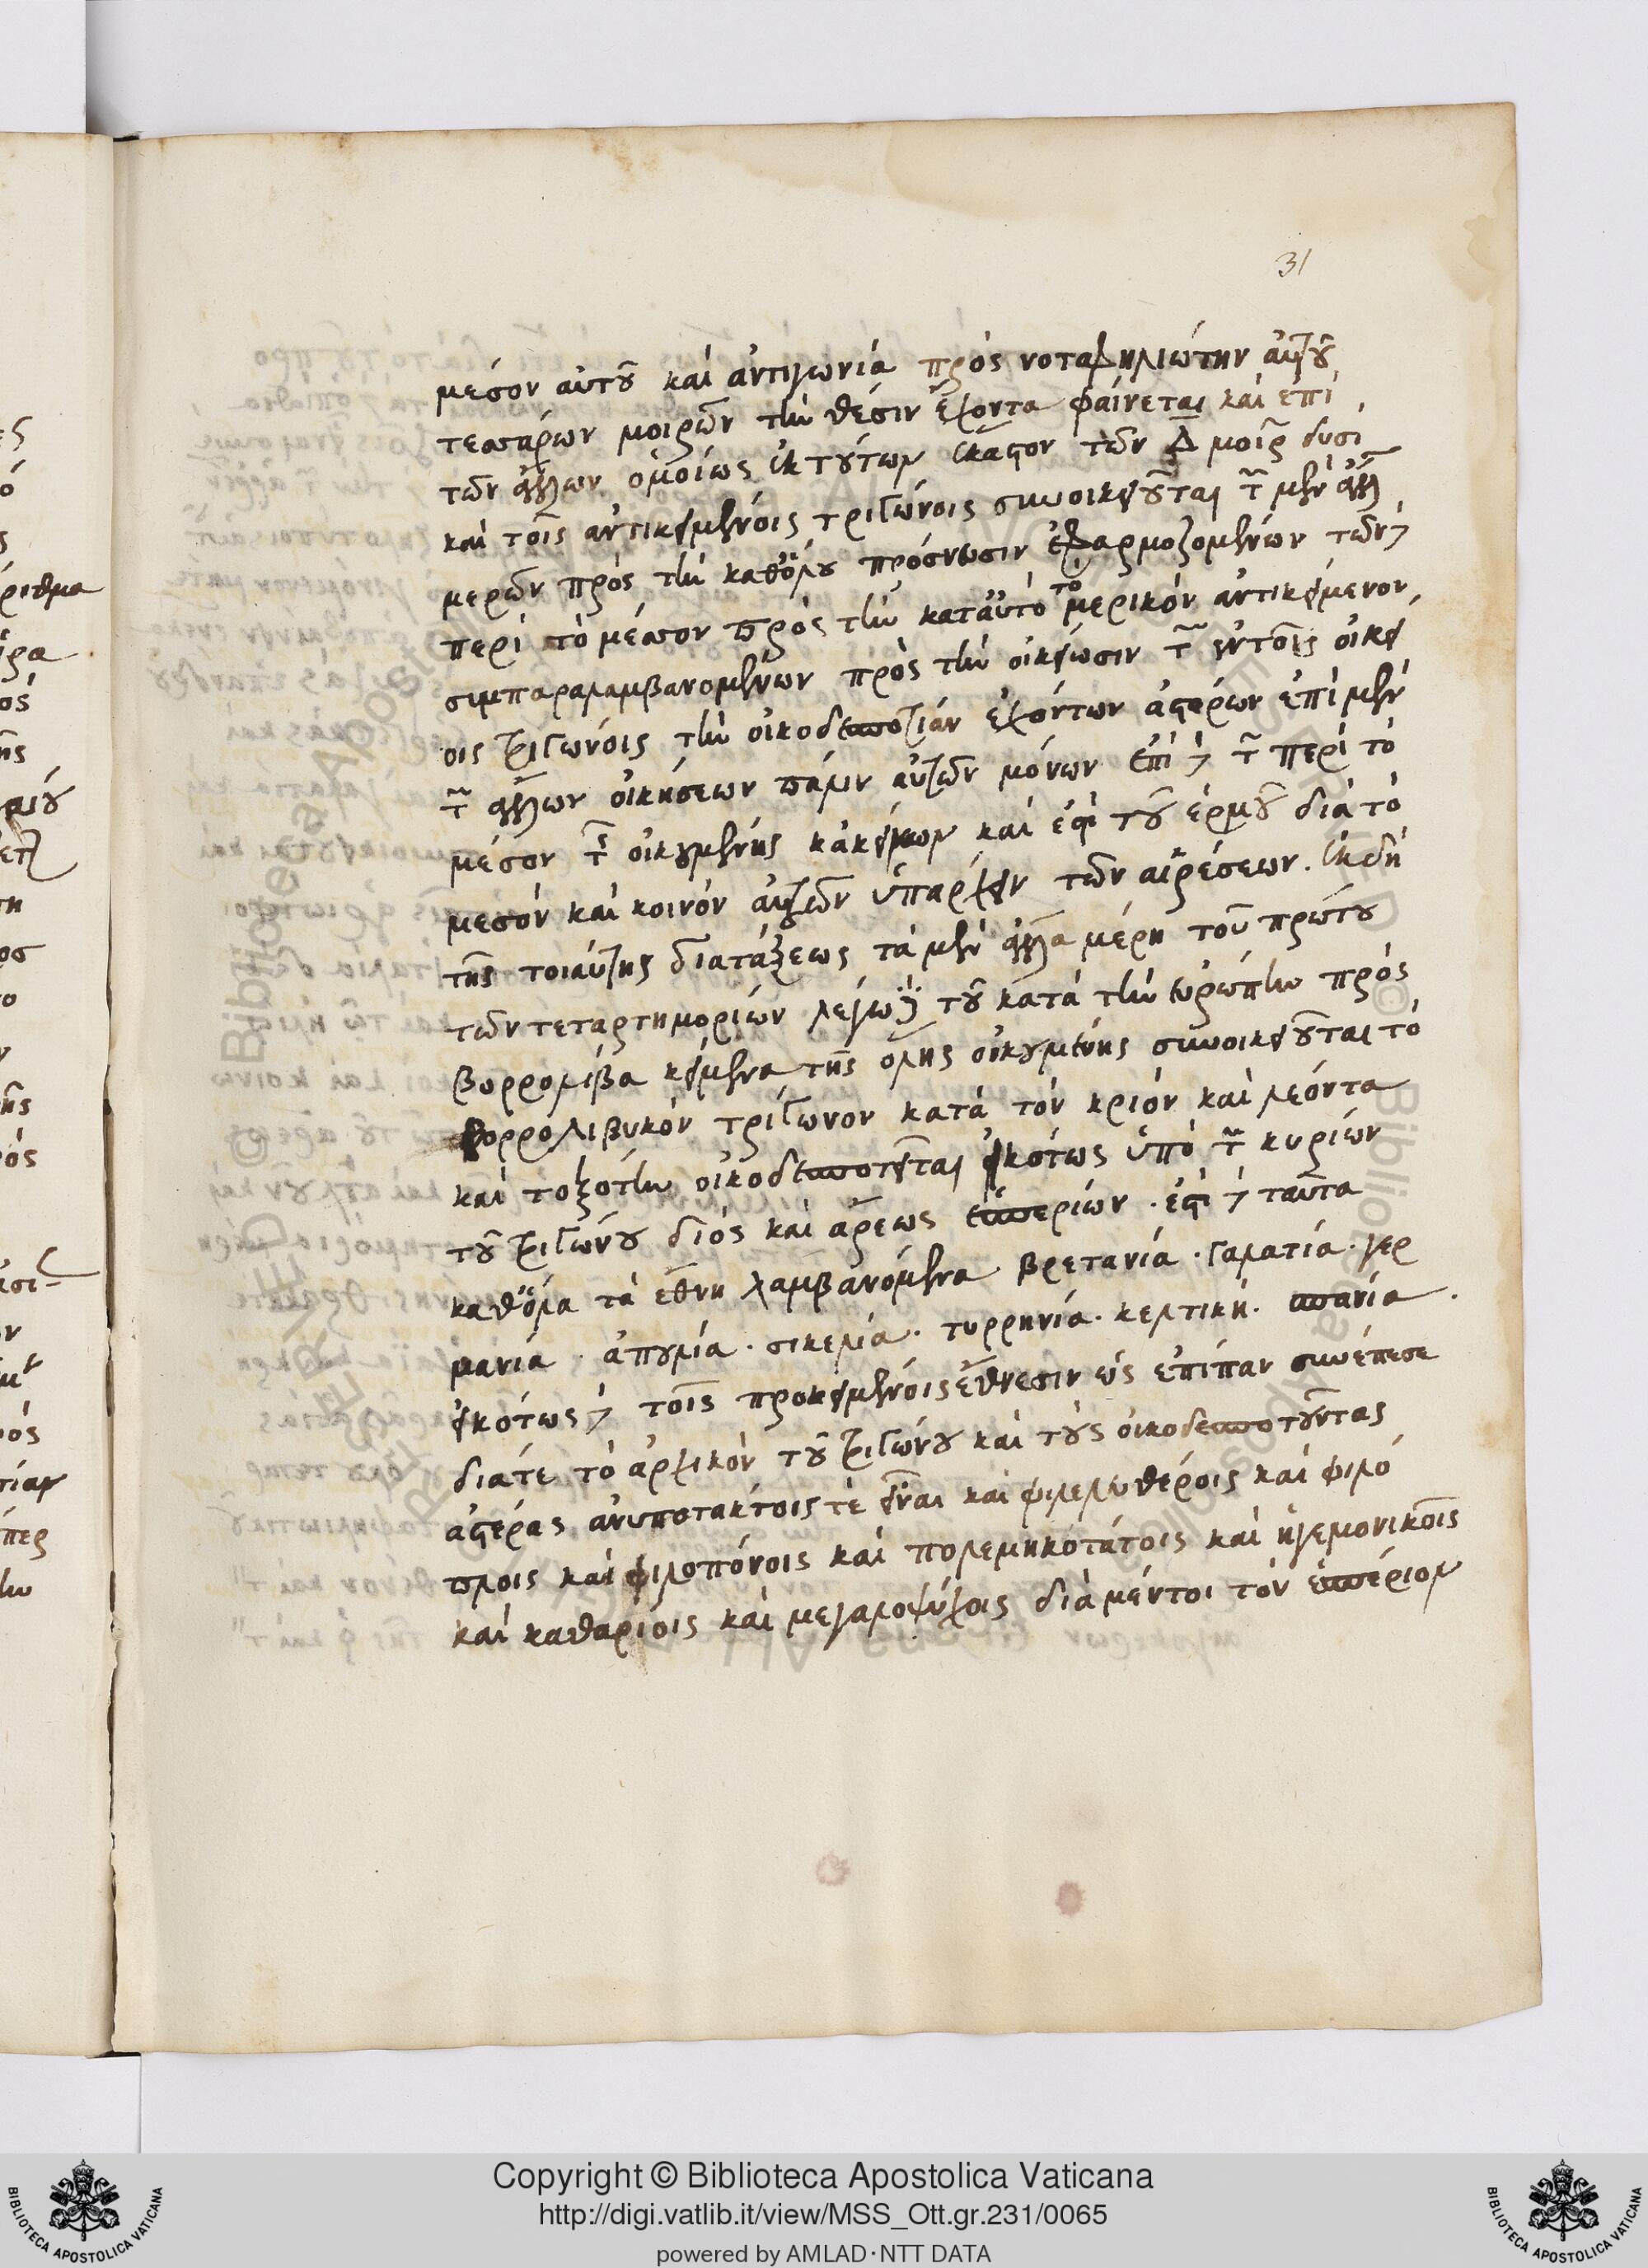 31
μέσον αὐτοῦ καὶ ἀντιγωνία πρὸς νοταπηλιώτην αὐτοῦ
τεσσάρων μοιρῶν τὴν θέσιν ἔχοντα φαίνεται καὶ ἐπὶ
τῶν ἄλλων ὁμοίως ἐκ τούτων ἕκαστον τῶν Δ μοιρ δυσὶ
καὶ τοῖς ἀντικειμένοις τριγώνοις συνοικειοῦται τ μὲν ἄλλ
μερῶν πρὸς τὴν καθόλου πρόσνωσιν ἐφαρμοζομένων τῶν δὲ
περὶ τὸ μέσσον πρὸς τὴν κατ αὐτὸ τὸ μερικὸν ἀντικείμενον
συμπαραλαμβανομένων πρὸς τὴν οἰκείωσιν τ ἐν τοῖς οἰκεί
οις τριγώνοις τὴν οἰκοδεσποτίαν ἐχόντων ἀστέρων ἐπὶ μὲν
τ ἄλλων οἰκήσεων πάλιν αὐτῶν μόνων ἐπὶ δὲ τ περὶ τὸ
μέσον τ οἰκουμένης κἀκείνων καὶ ἔτι τοῦ ἑρμοῦ διὰ τὸ
μεσὸν καὶ κοινὸν αὐτῶν ὑπάρχειν τῶν αἱρέσεων. ἐκ δὴ
τῆς τοιαύτης διατάξεως τὰ μὲν ἄλλα μέρη τοῦ πρώτου
τῶν τεταρτημορίων λέγω δὴ τοῦ κατὰ τὴν εὐρώπην πρὸς
βορρολίβα κείμενα τῆς ὅλης οἰκουμένης συνοικειοῦται τὸ
βορρολιβυκὸν τρίγωνον κατὰ τὸν κριὸν καὶ λέοντα
καὶ τοξότην οἰκοδεσποτεῖται εἰκότως ὑπὸ τ κυρίων
τοῦ τριγώνου διὸς καὶ ἄρεως ἑσπερίων. ἔστι δὲ ταῦτα
καθόλα τὰ ἔθνη λαμβανόμενα βρετανία. γαλατία. γερ
μανία. ἀπουλία. σικελία. τυρρηνία. κελτικὴ. σπανία.
εἰκότως δὲ τοῖς προκειμένοις ἔθνεσιν ὡς ἐπίπαν συνέπεσε
διά τε τὸ ἀρχικὸν τοῦ τριγώνου καὶ τοὺς οἰκοδεσποτοῦντας
ἀστέρας ἀνυποτάκτοις τὲ εἶναι καὶ φιλελευθέροις καὶ φιλό
πλοις καὶ φιλοπόνοις καὶ πολεμηκοτάτοις καὶ ἡγεμονικοῖς
καὶ καθαρίοις καὶ μεγαλοψύχοις διὰ μέντοι τὸν ἑσπέριον
Copyright © Biblioteca Apostolica Vaticana
http://digi.vatlib.it/view/MSS_Ott.gr.231/0065
powered by AMLAD·NTT DATA